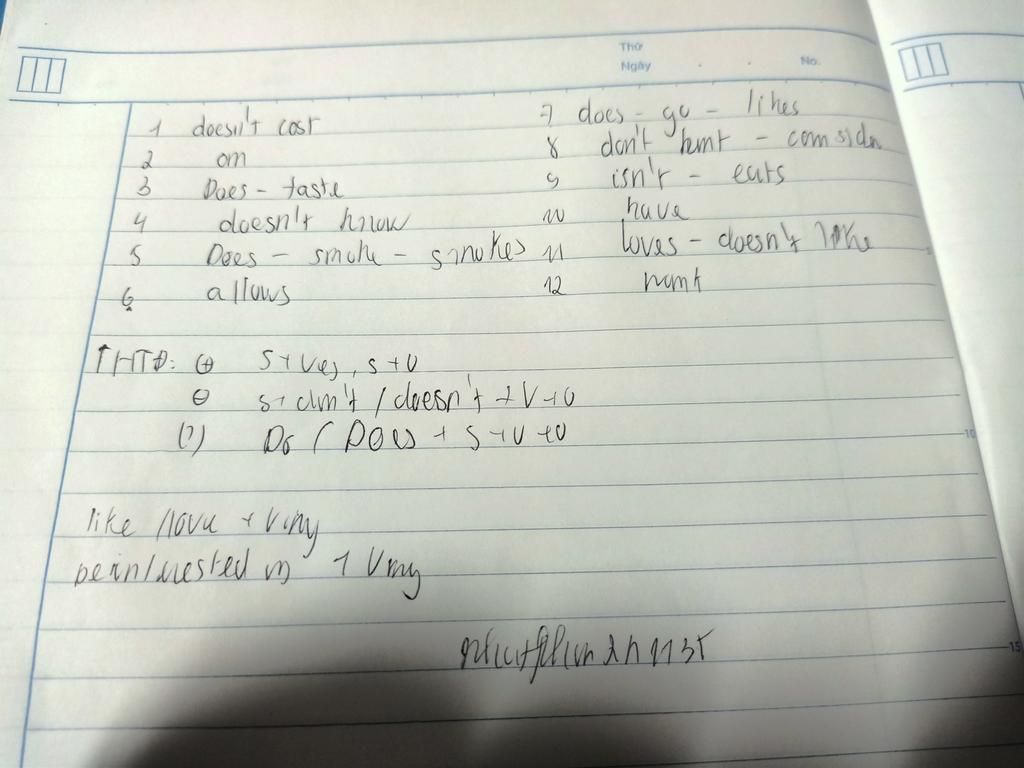 Thứ
Ngày No.
1 doesn't cost
2 am
3 Does - taste
4 doesn't know
5 Does - smoke - smokes
6 allows
7 does - go - likes
8 don't want - consider
9 isn't - eats
10 have
11 loves - doesn't like
12 want
THTĐ: (+) S+Ves, S+V
(-) S+ don't / doesn't + V + O
(?) Do / Does + S + V + O
10
like / love + Ving
be interested in + Ving
15